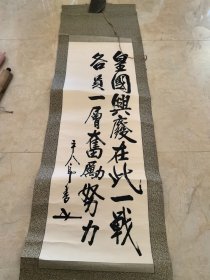 皇國興廢在此一戦
各員一層奮勵努力